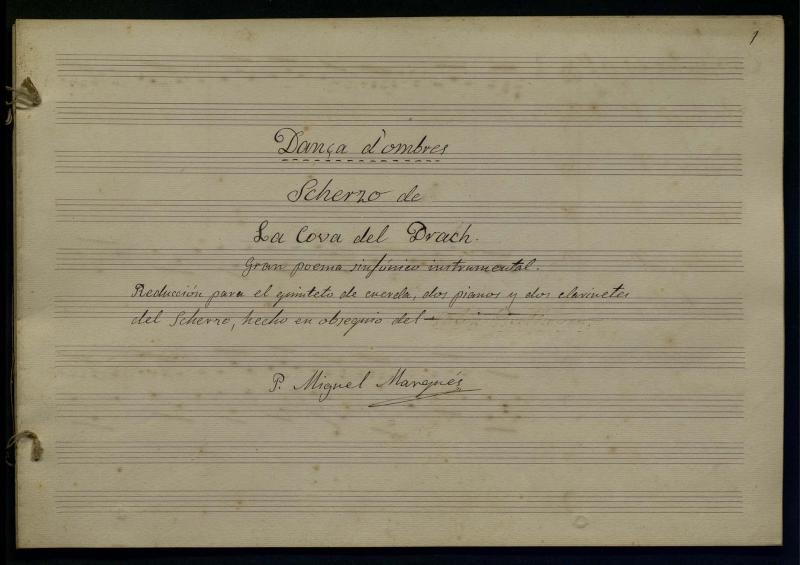 1
Dança d'ombres
Scherzo de
La Cova del Drach.
Gran poema sinfónico instrumental.
Reducción para el quinteto de cuerda, dos pianos y dos clarinetes
del Scherzo, hecho en obsequio del
P. Miguel Marqués